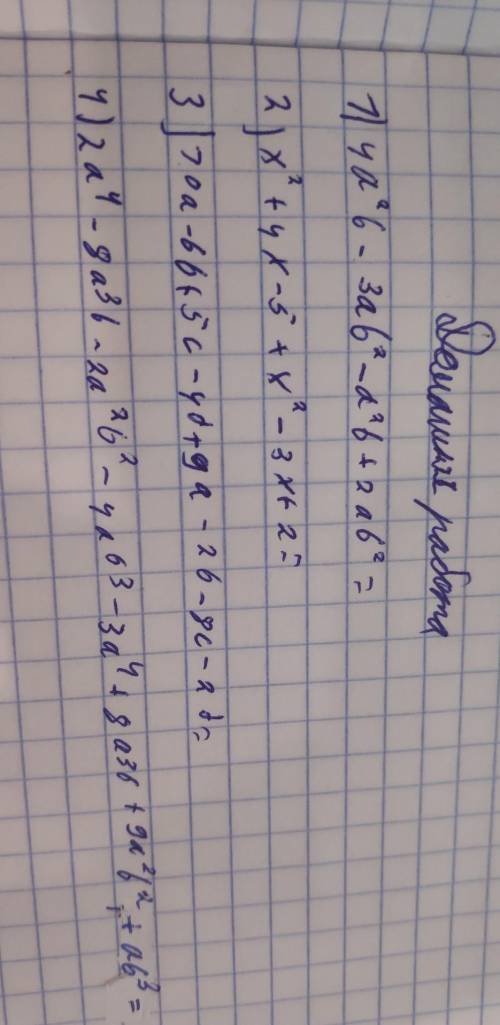 Домашняя работа
1) 4a²b - 3ab² - a²b + 2ab² =
2) x² + 4x - 5 + x² - 3x + 2 =
3) 70a - 6b + 5c - 4d + 9a - 2b - 8c - 2d =
4) 2a⁴ - 8a³b - 2a²b² - 4ab³ - 3a⁴ + 8a³b + 9a²b² + ab³ =